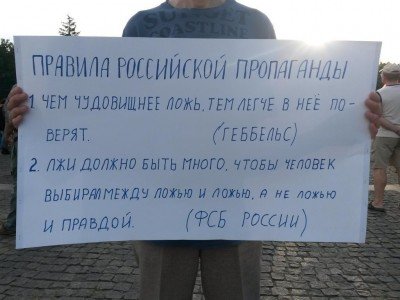 SUNSET
COASTLINE
ПРАВИЛА РОССИЙСКОЙ ПРОПАГАНДЫ
1. ЧЕМ ЧУДОВИЩНЕЕ ЛОЖЬ, ТЕМ ЛЕГЧЕ В НЕЁ ПО-
ВЕРЯТ. (ГЕББЕЛЬС)
2. ЛЖИ ДОЛЖНО БЫТЬ МНОГО, ЧТОБЫ ЧЕЛОВЕК
ВЫБИРАЛ МЕЖДУ ЛОЖЬЮ И ЛОЖЬЮ, А НЕ ЛОЖЬЮ
И ПРАВДОЙ. (ФСБ РОССИИ)